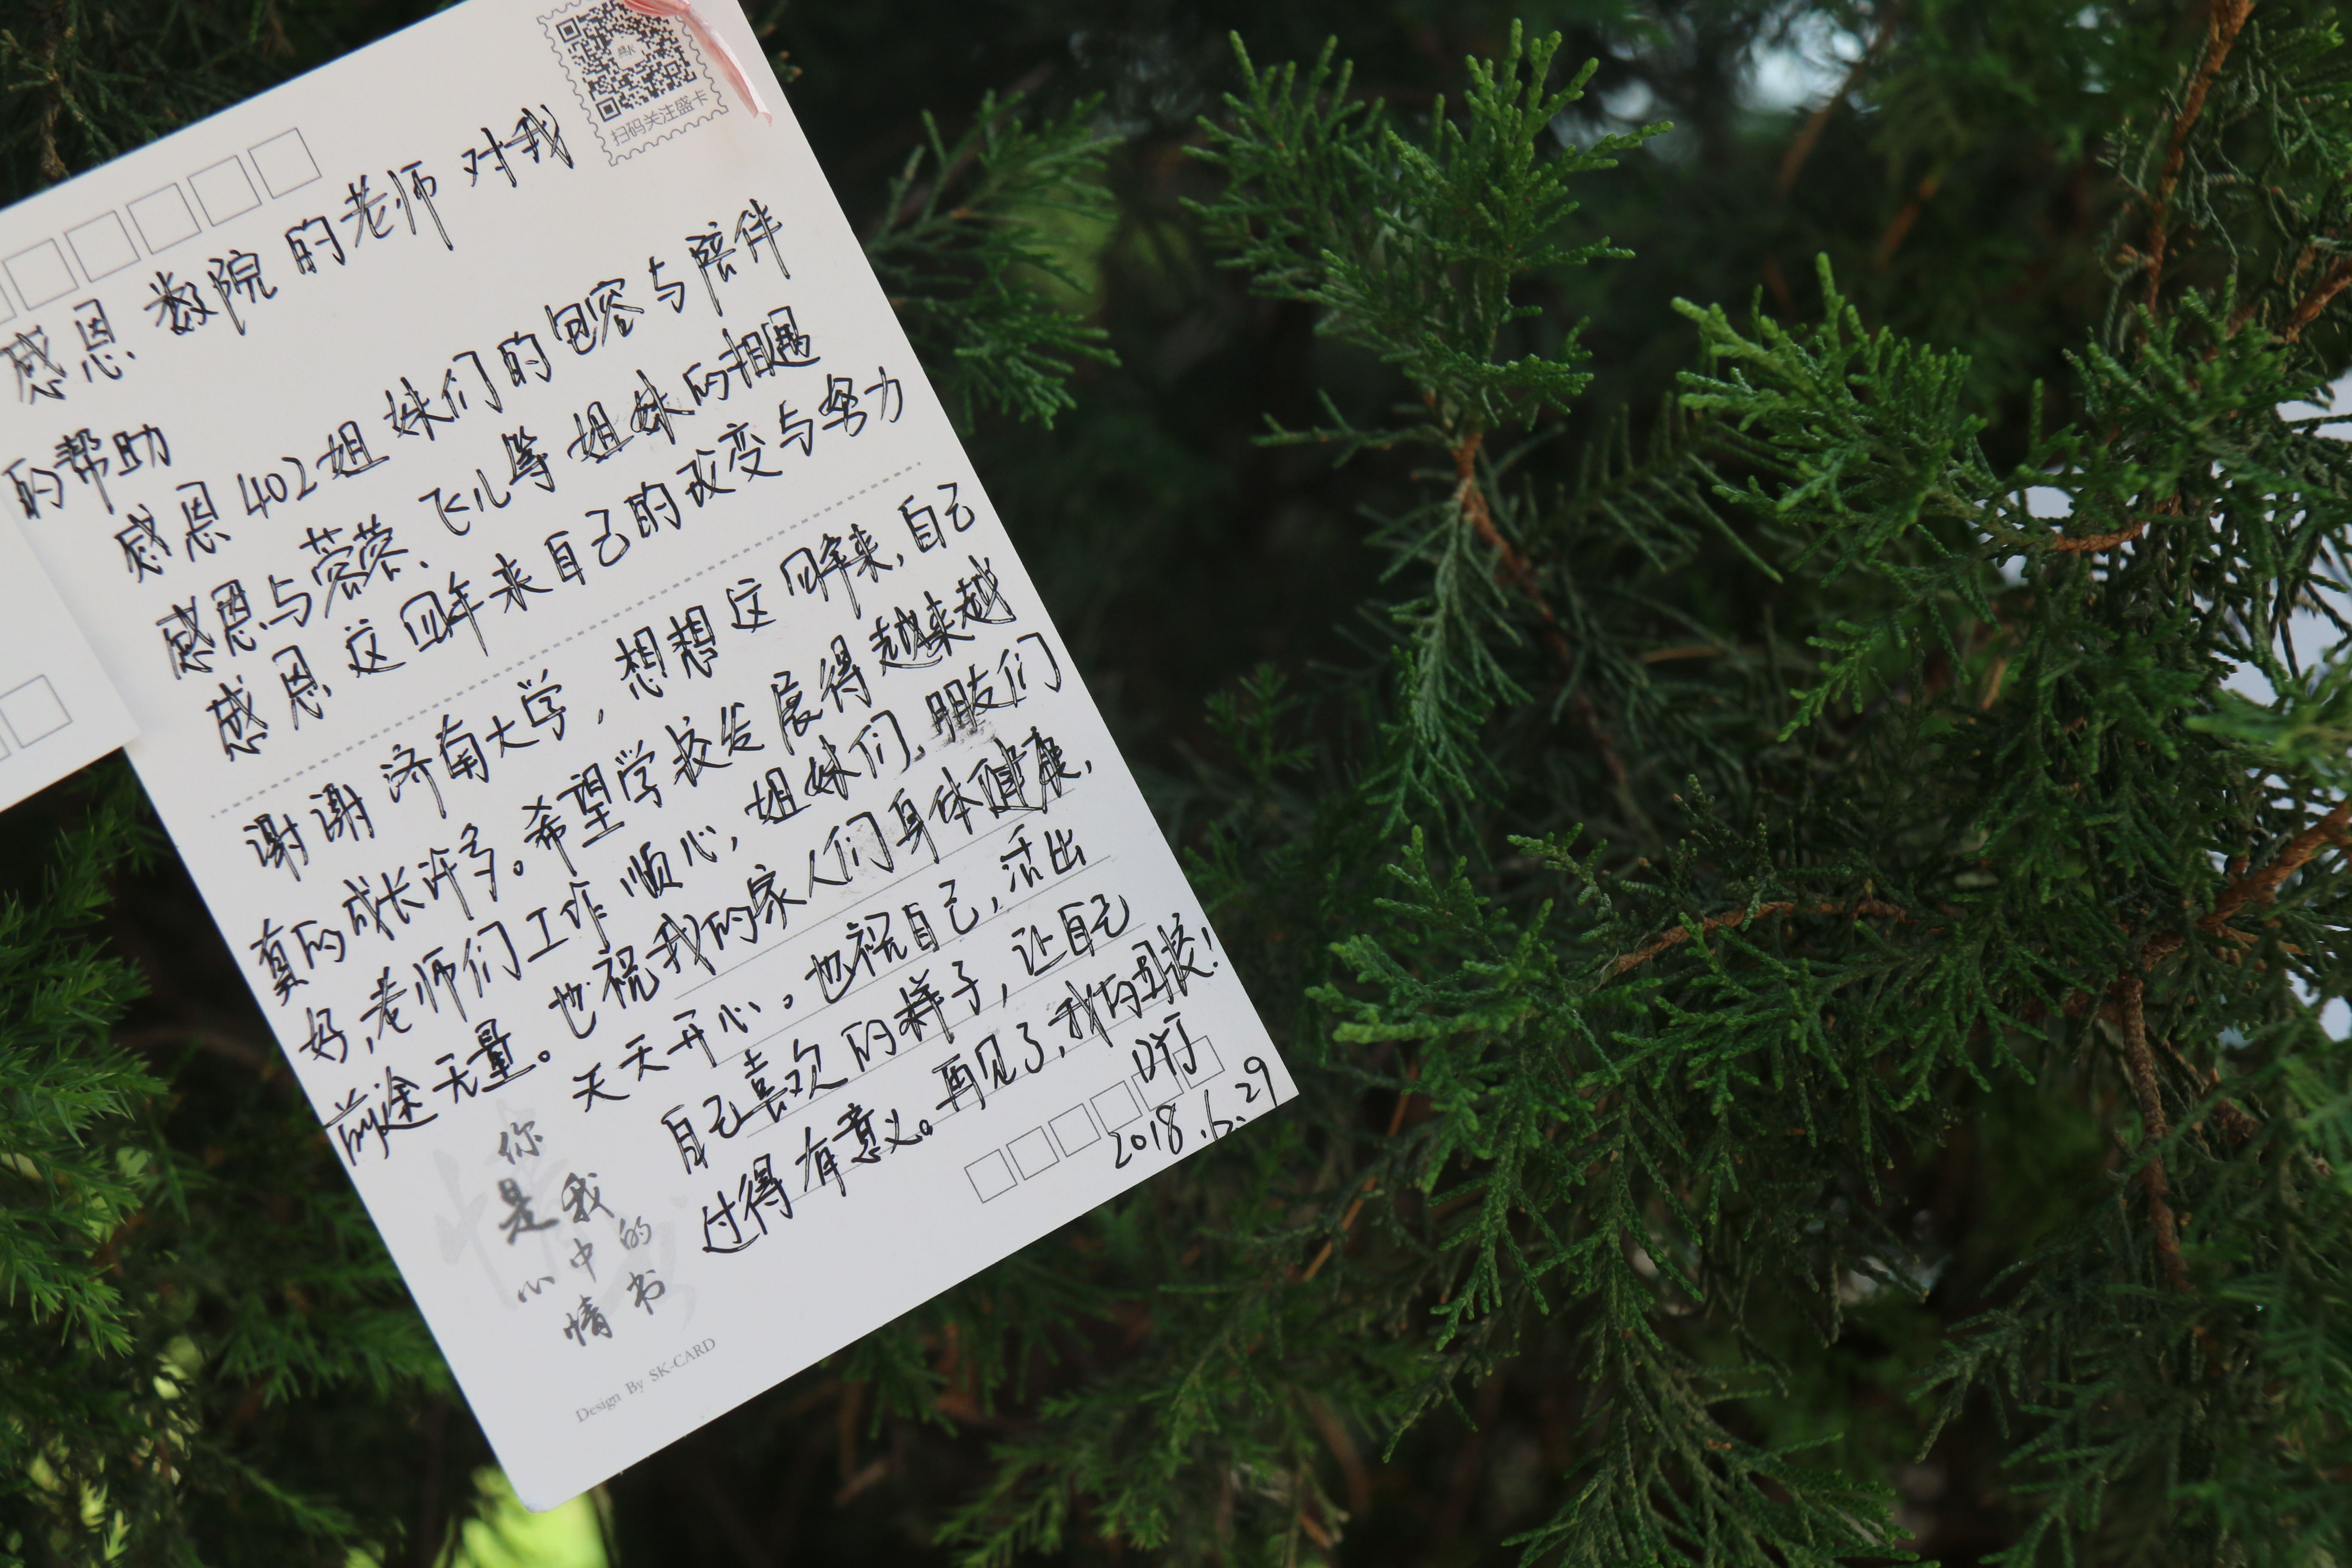 扫码关注盛卡
感恩 数院的老师对我
的帮助
感恩 402姐妹们的包容与陪伴
感恩与蓉蓉、飞儿等姐妹的相遇
感恩 这四年来自己的改变与努力
谢谢济南大学，想想这四年来，自己
真的成长许多。希望学校发展得越来越
好，老师们工作顺心，姐妹们、朋友们
前途无量。也祝我的家人们身体健康，
天天开心。也祝自己，活出
自己喜欢的样子，让自己
过得有意义。再见了，我的母校！
2018.6.29
你是我心中的情书
Design By SK-CARD